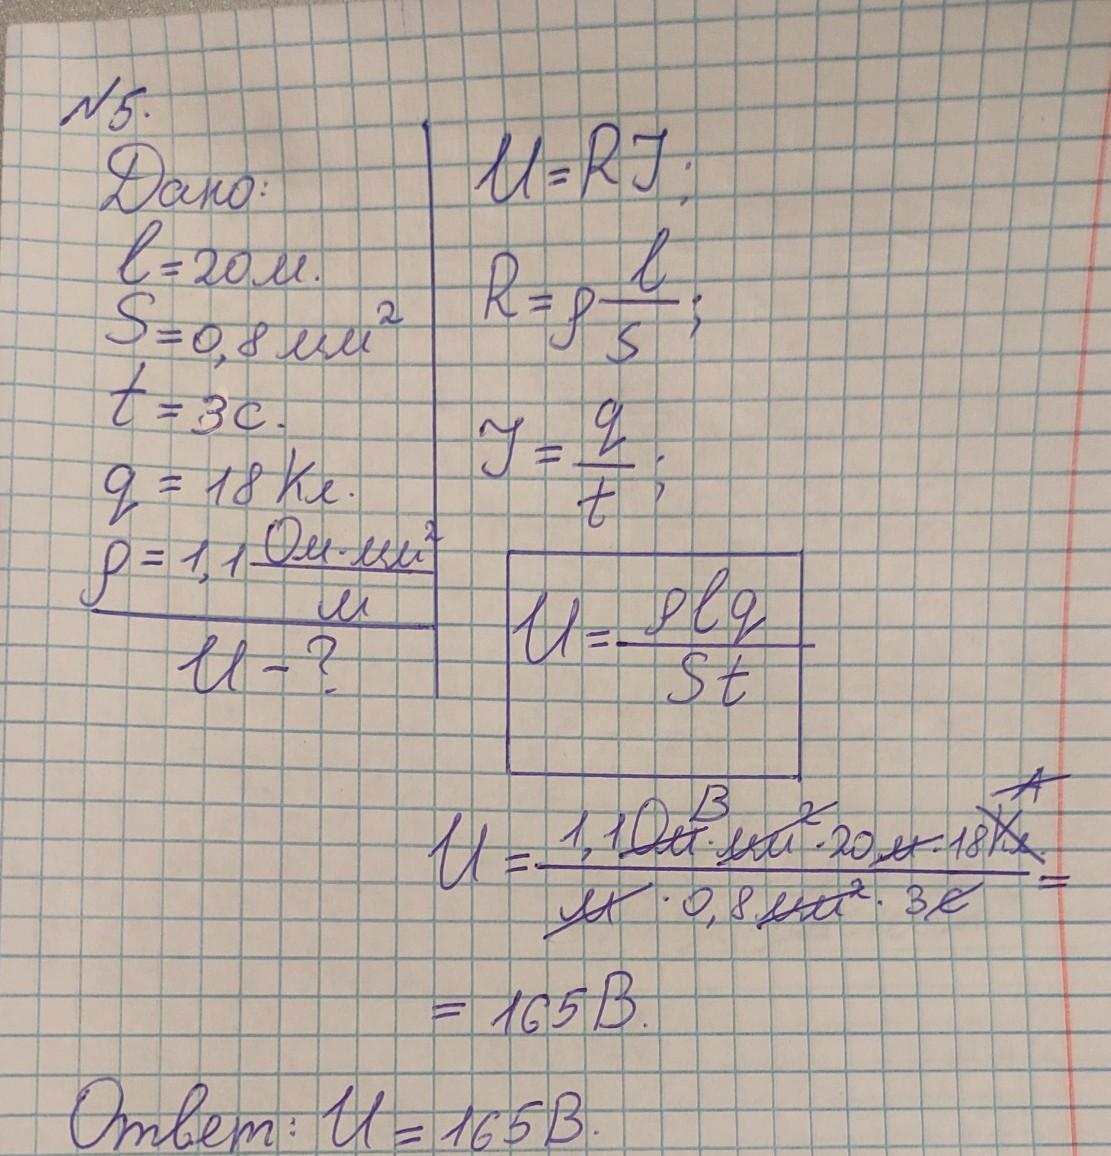 №5.
Дано:
l = 20 м.
S = 0,8 мм²
t = 3 с.
q = 18 Кл.
ρ = 1,1 Ом·мм²/м
U - ?
U = RI;
R = ρ l/S;
I = q/t;
U = ρlq/St
U = 1,1 Ом·мм²·20 м·18 Кл / м·0,8 мм²·3 с =
В
А
= 165 В.
Ответ: U = 165 В.